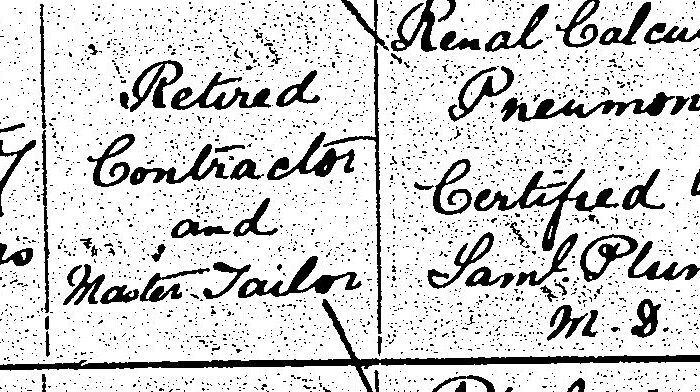 Retired
Contractor
and
Master Tailor
Renal Calcu
Pneumon
Certified
Saml. Plum
M.D.